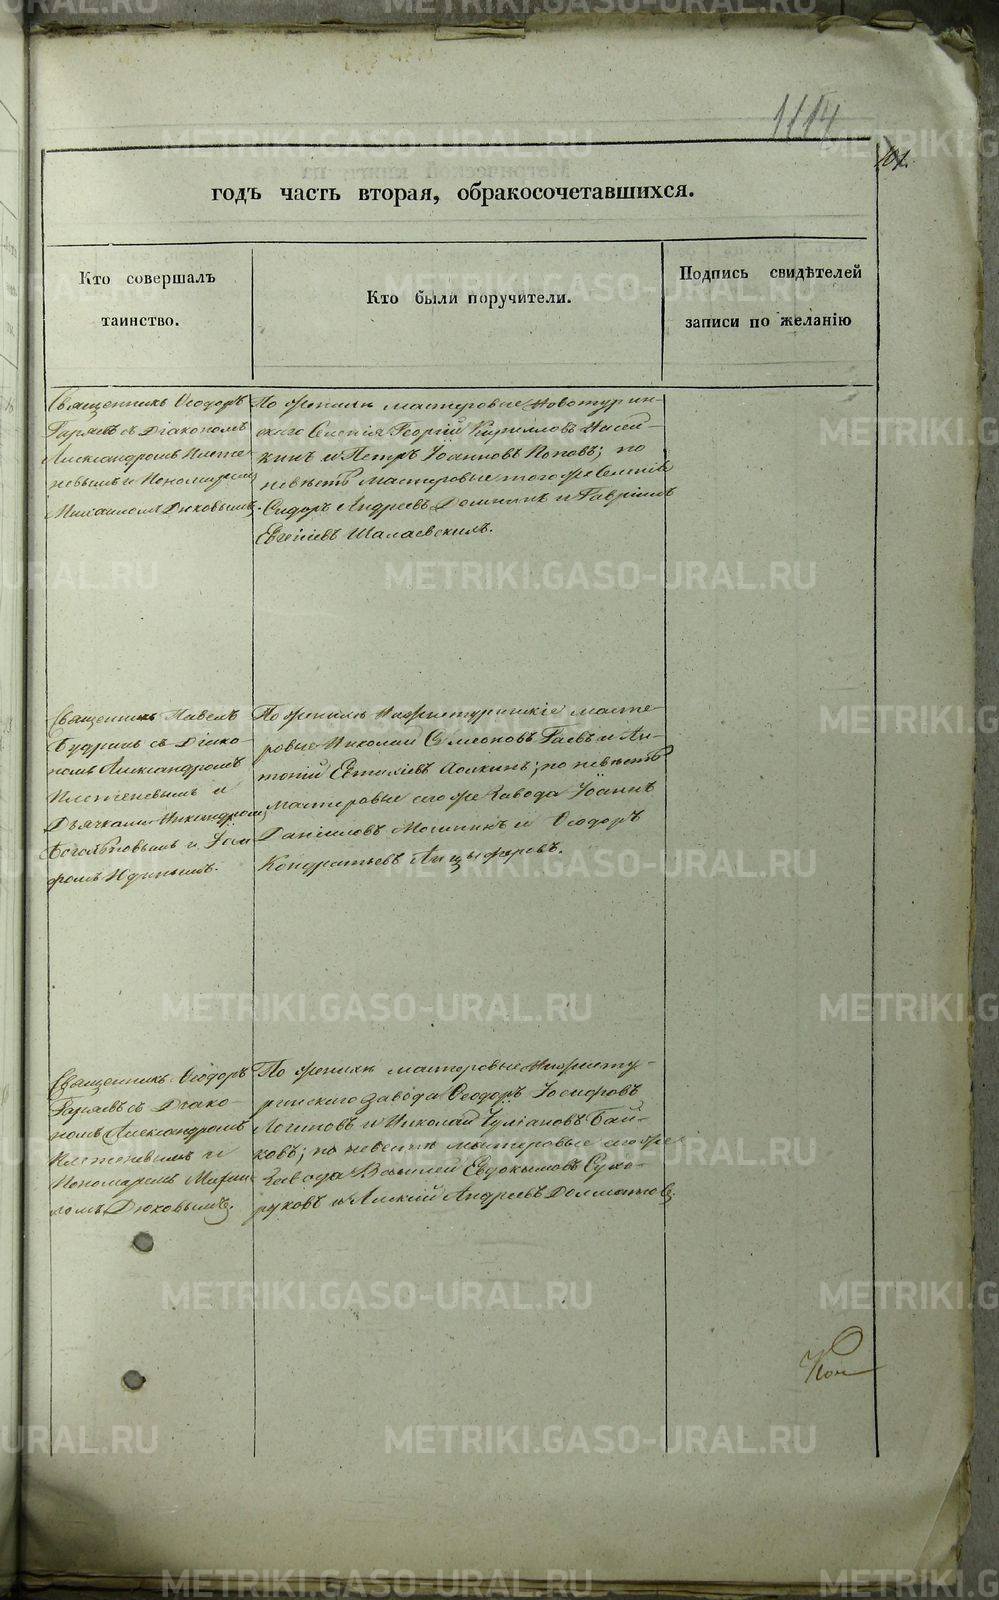 1114
101.
годъ часть вторая, обракосочетавшихся.
Кто совершалъ
таинство.
Кто были поручители.
Подпись свидѣтелей
записи по желанію
Священникъ Ѳеодоръ
Гаряевъ съ Діакономъ
Александромъ Плете-
невымъ и Пономаремъ
Михаиломъ Дюковымъ.
По женихѣ мастеровые Новотурин-
скаго Селенія Георгій Кирилловъ
и Петръ Іоанновъ Поповъ; по
невѣстѣ мастеровые того же Селенія
Сидоръ Андреевъ и Гавріилъ
Евгеніевъ Шалаевскихъ.
Священникъ Павелъ
Будринъ съ Діако-
номъ Александромъ
Плетеневымъ и
Дьячками Никандромъ
Боголѣповымъ и
Юдинымъ.
По женихѣ Нижнетуринскіе масте-
ровые Николай Симеоновъ Гаевъ и Ан-
тоній по невѣстѣ
мастеровые сего же Завода Іоаннъ
Даніиловъ и Ѳеодоръ
Кондратьевъ Анцыферовъ.
Священникъ Ѳеодоръ
Гаряевъ съ Діако-
номъ Александромъ
Плетеневымъ и
Пономаремъ Михаи-
ломъ Дюковымъ.
По женихѣ мастеровые Нижнету-
ринскаго завода Ѳеодоръ Іосифовъ
Логиновъ и Николай Іуліановъ Бай-
ковъ; по невестѣ мастеровые сего же
Завода Василей Евдокимовъ Сухо-
руковъ и Алексій Андреевъ Долматовъ.
METRIKI.GASO-URAL.RU